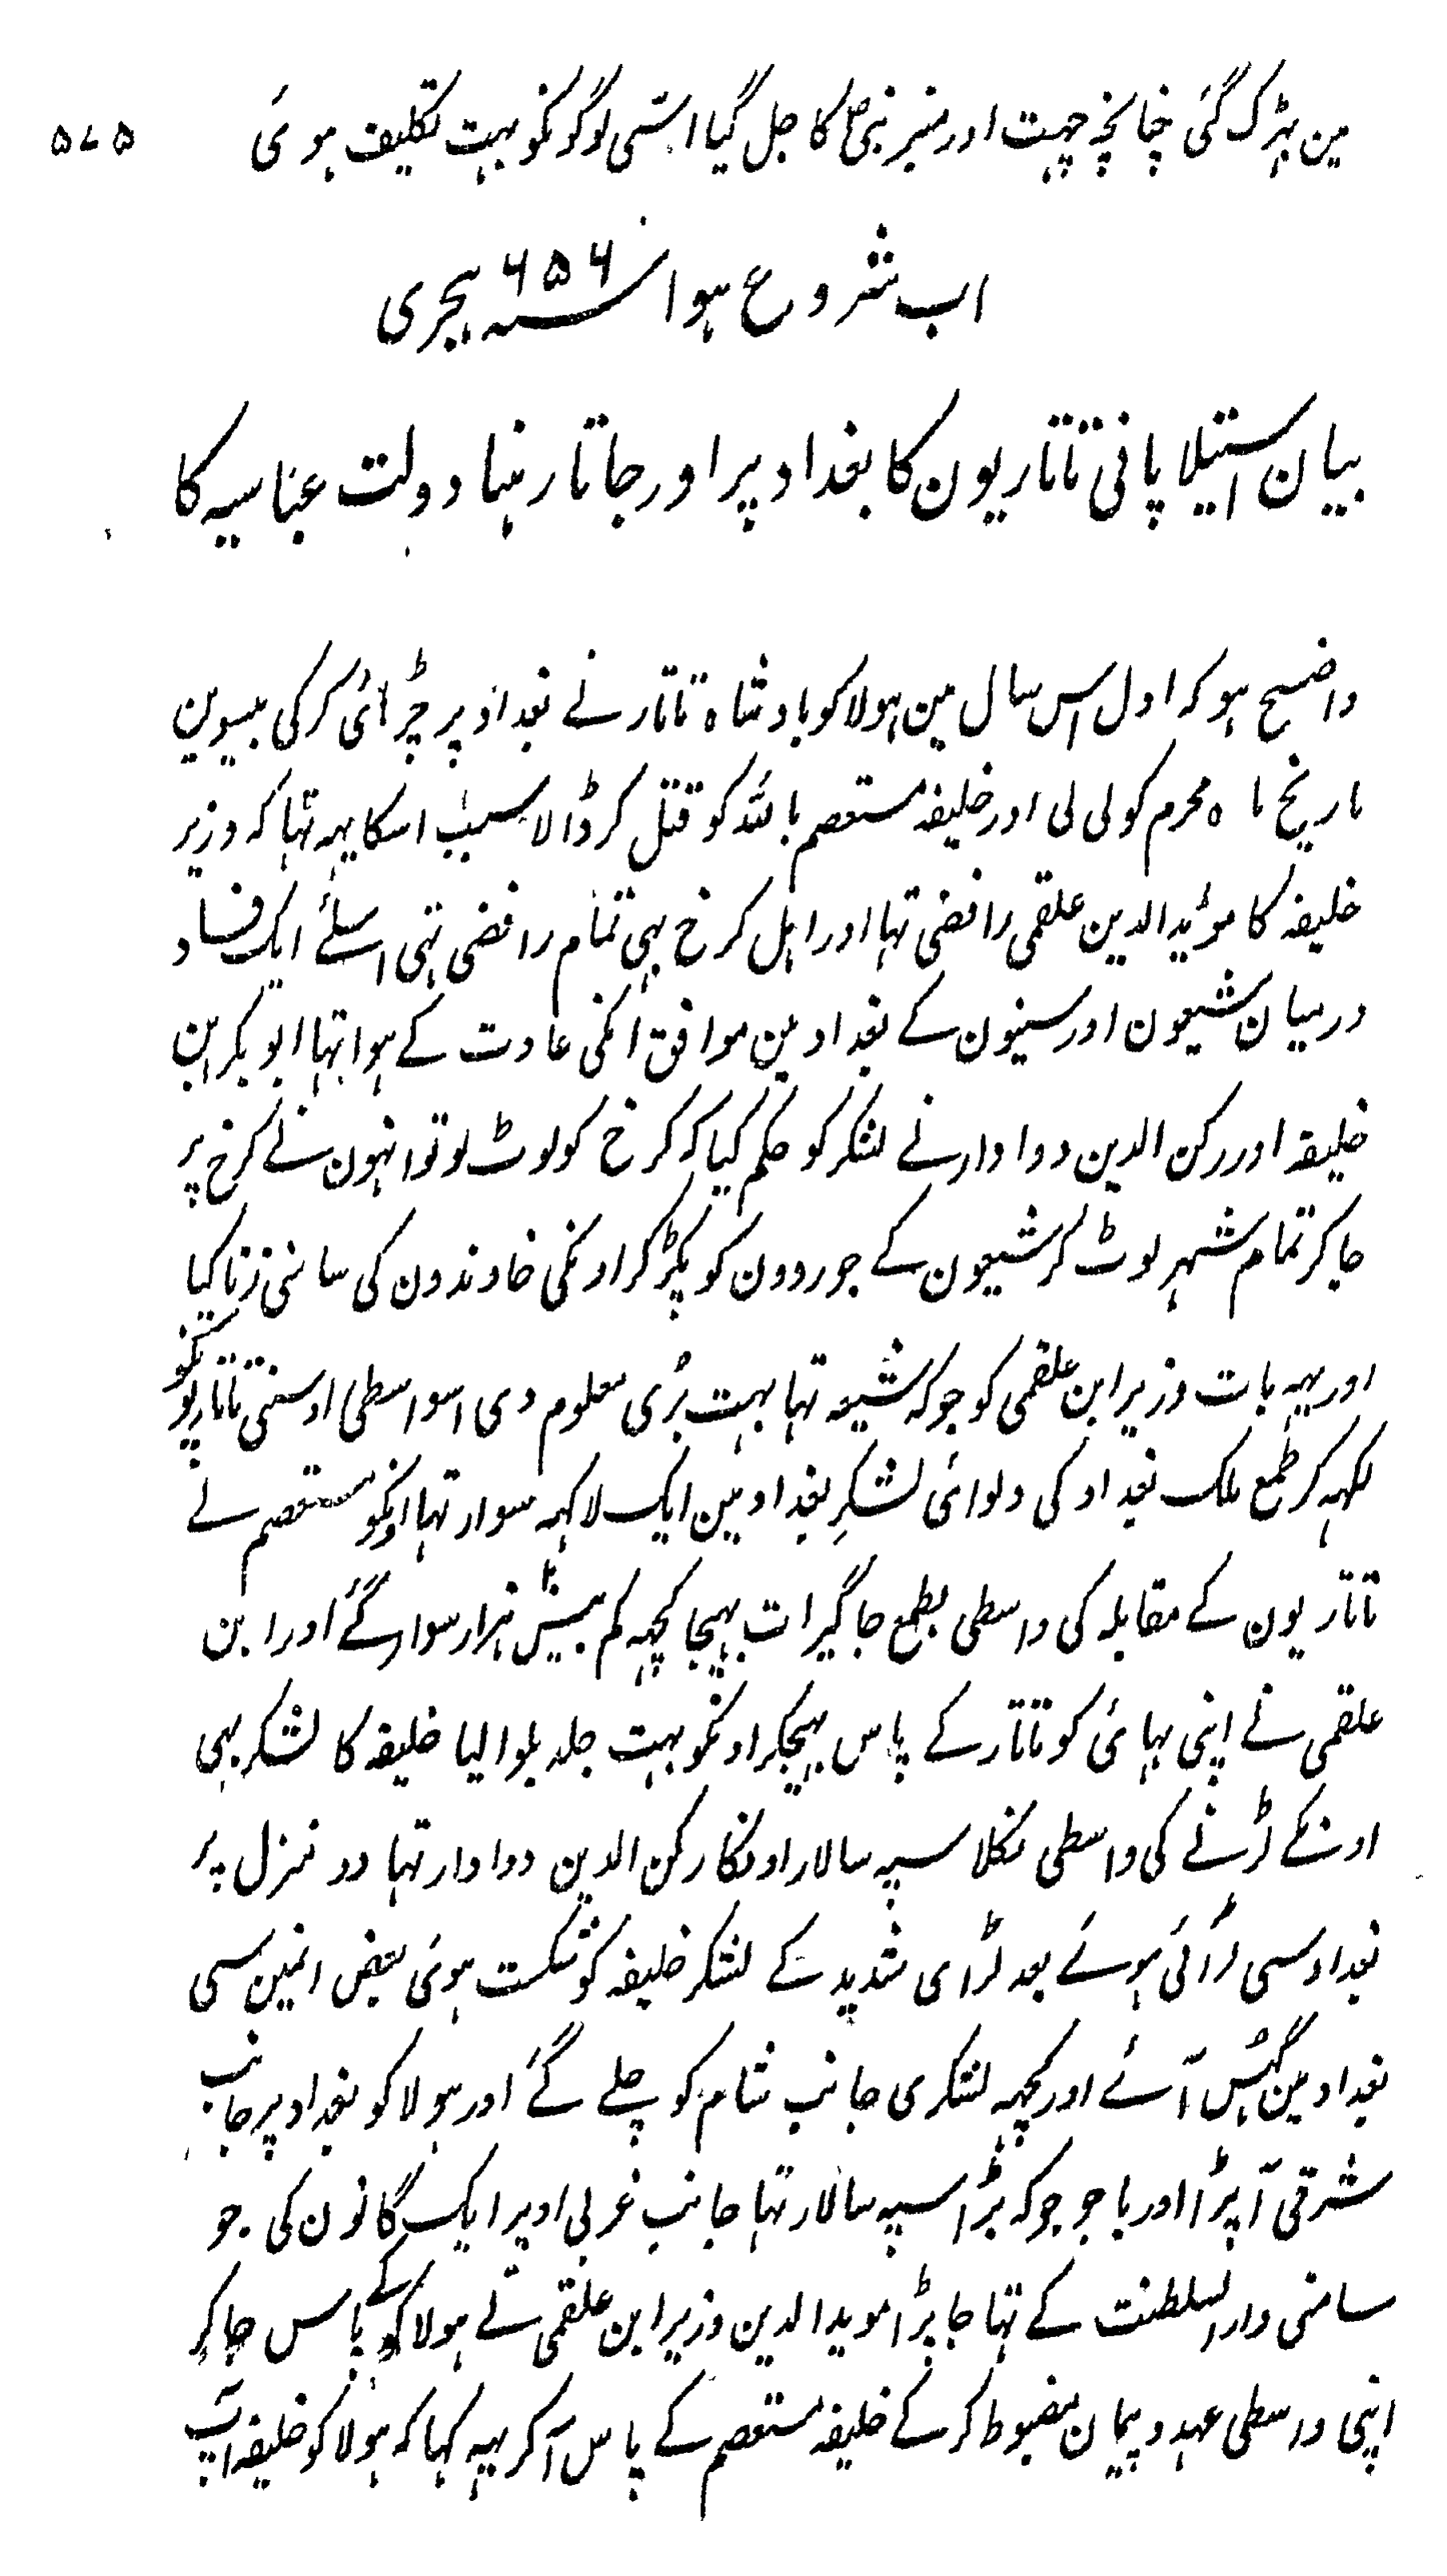 مین بہڑک گئی چنانچہ چہت اور منبر نبیؐ کا جل گیا استی لوگونکو بہت تکلیف ہوئی ۵۷۵
اب شروع ہوا ۶۵۶ سنہ ہجری
بیان استیلا پانی تاتاریون کا بغداد پر اور جاتا رہنا دولت عباسیہ کا
واضح ہو کہ اول اس سال مین ہولاکو بادشاہ تاتار نے بغداد پر چڑہائی کر کی بیسوین
تاریخ ماہ محرم کو لی لی اور خلیفہ مستعصم باللہ کو قتل کر ڈالا سبب اسکا یہہ تہا کہ وزیر
خلیفہ کا موئید الدین علقمی رافضی تہا اور اہل کرخ بہی تمام رافضی تہی اسلئے ایک فساد
درمیان شیعون اور سنیون کے بغداد مین موافق انکی عادت کے ہوا تہا ابو بکر ابن
خلیفہ اور رکن الدین دوادار نے لشکر کو حکم کیا کہ کرخ کو لوٹ لو تو انہون نے کرخ پر
جا کر تمام شہر لوٹ کر شیعون کے جوروون کو پکڑ کر اونکی خاوندون کی سامنی زنا کیا
اور یہہ بات وزیر ابن علقمی کو جو کہ شیعہ تہا بہت بُری معلوم دی اسواسطی اوسنی تاتاریونکو
لکہہ کر طمع ملک بغداد کی دلوائی لشکرِ بغداد مین ایک لاکہہ سوار تہا اونکو مستعصم نے
تاتاریون کے مقابلہ کی واسطی بطمع جاگیرات بہیجا کچہہ کم بیش ہزار سوار گئے اور ابن
علقمی نے اپنی بہائی کو تاتار کے پاس بہیجکر اونکو بہت جلد بلوا لیا خلیفہ کا لشکر بہی
اونکے لڑنے کی واسطی نکلا سپہ سالار اونکا رکن الدین دوادار تہا دو منزل پر
بغداد سی لڑائی ہوئے بعد لڑای شدید کے لشکر خلیفہ کو شکست ہوئی بعض انمین سی
بغداد مین گہس آئے اور کچہہ لشکری جانب شام کو چلے گئے اور ہولاکو بغداد پر جانب
شرقی آپڑا اور باجو جو کہ بڑا سپہ سالار تہا جانب غربی اوپر ایک گانون کی جو
سامنی دار السلطنت کے تہا جا پڑا موید الدین وزیر ابن علقمی نے ہولاکو کے پاس جا کر
اپنی واسطی عہد و پیمان مضبوط کر کے خلیفہ مستعصم کے پاس آ کر یہہ کہا کہ ہولاکو خلیفہ آپ